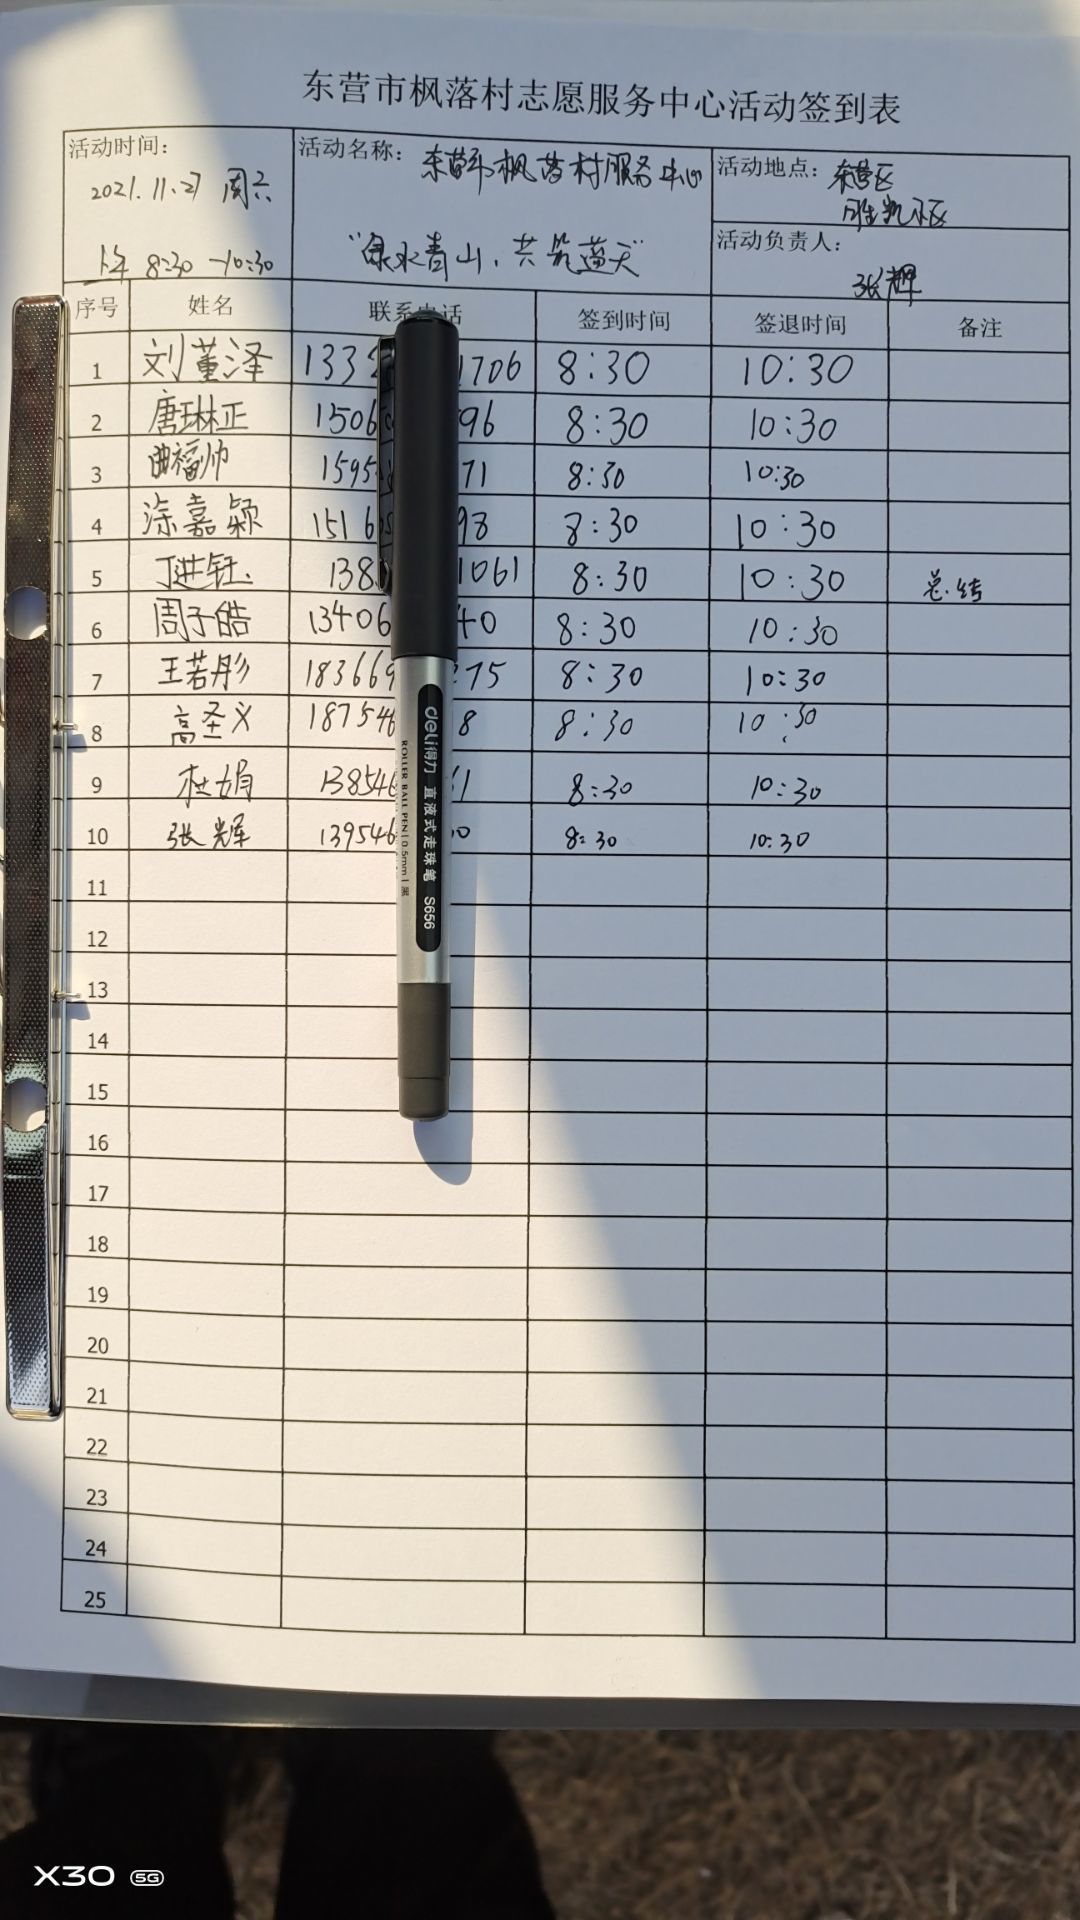 东营市枫落村志愿服务中心活动签到表
活动时间：
2021.11.27 周六
上午 8:30-10:30
活动名称：东营市枫落村服务中心
“绿水青山，共筑蓝天”
活动地点：东营区
胜凯小区
活动负责人：
张辉
序号 姓名 联系电话 签到时间 签退时间 备注
1 刘董泽 133 1706 8:30 10:30
2 唐琳正 1506 96 8:30 10:30
3 曲福帅 1595 71 8:30 10:30
4 涂嘉颖 151605 98 8:30 10:30
5 丁进钰 138 1061 8:30 10:30 总结
6 周子皓 13406 40 8:30 10:30
7 王若彤 183669 275 8:30 10:30
8 高圣义 187546 8 8:30 10:30
9 杜娟 138546 61 8:30 10:30
10 张辉 139546 50 8:30 10:30
11
12
13
14
15
16
17
18
19
20
21
22
23
24
25
deli得力 直液式走珠笔 S656
ROLLER BALL PEN|0.5mm|黑
X30 5G